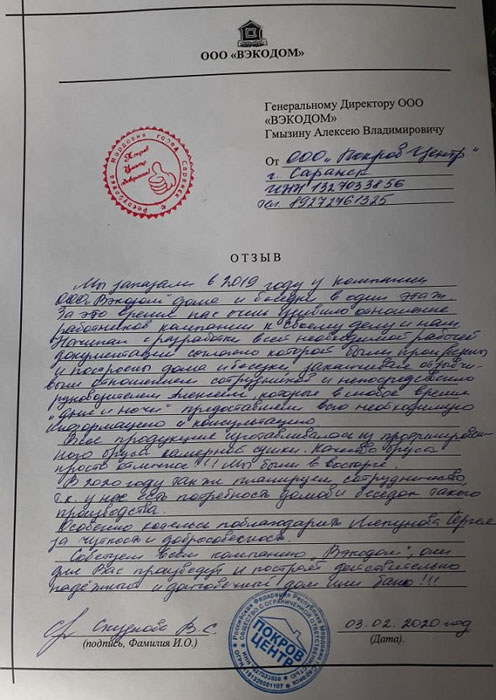 ООО «ВЭКОДОМ»
Генеральному Директору ООО
«ВЭКОДОМ»
Гмызину Алексею Владимировичу
От ООО „Покров Центр"
г. Саранск
ИНН 1327033856
тел. 89272761325
Республика Мордовия город Саранск
Покров
Центр
ОТЗЫВ
Мы заказали в 2019 году у компании
ООО „Вэкодом" дома и беседки в один этаж.
За это время нас очень удивило отношение
работников компании к своему делу и нам
Начиная с разработки всей необходимой рабочей
документации согласно которой были произведены
и построены дома и беседки, заканчивая отзывчи-
вым отношением сотрудников и непосредственно
руководителем Алексеем, которые в любое время
"дня и ночи" предоставляли всю необходимую
информацию и консультацию.
Вся продукция изготавливалась из профилирован-
ного бруса камерной сушки. Качество бруса
просто отличное!!! Мы были в восторге.
В 2020 году также планируем сотрудничество,
т.к. у нас есть потребность домов и беседок такого
производства.
Особенно хотелось поблагодарить Сергея
за чуткость и добросовестность.
Советуем всем компанию „Вэкодом", они
для Вас произведут и построят действительно
надёжный и долговечный дом или баню!!!
В.С.
03.02.2020 год
(подпись, Фамилия И.О.)
(Дата).
Российская Федерация Республика Мордовия
ПОКРОВ
ЦЕНТР